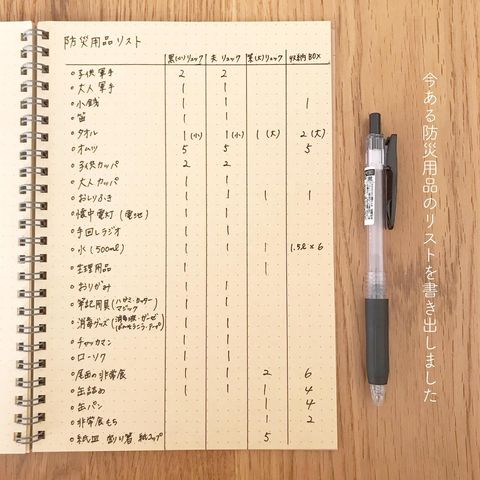 防災用品リスト
黒(小)リュック 夫リュック 黒(大)リュック 収納BOX
○子供軍手 2 2
○大人軍手 1 1
○小銭 1 1 1
○笛 1 1
○タオル 1(小) 1(小) 1(大) 2(大)
○オムツ 5 5 5
○子供カッパ 2 2
○大人カッパ 1 1
○おしりふき 1 1 1 1
○懐中電灯(電池) 1 1
○手回しラジオ 1 1
○水(500ml) 1 1 1 1.5l×6
○生理用品 1 1
○おりがみ 1 1
○筆記用具(ハサミ・カッター マジック) 1 1
○消毒グッズ(消毒液・ガーゼ ばんそうこう・テープ) 1 1
○チャッカマン 1 1
○ローソク 1 1
○尾西の非常食 1 1 2 6
○缶詰め 1 1 1 4
○缶パン 1 4
○非常食もち 1 2
○紙皿 割り箸 紙コップ 5
今ある防災用品のリストを書き出しました